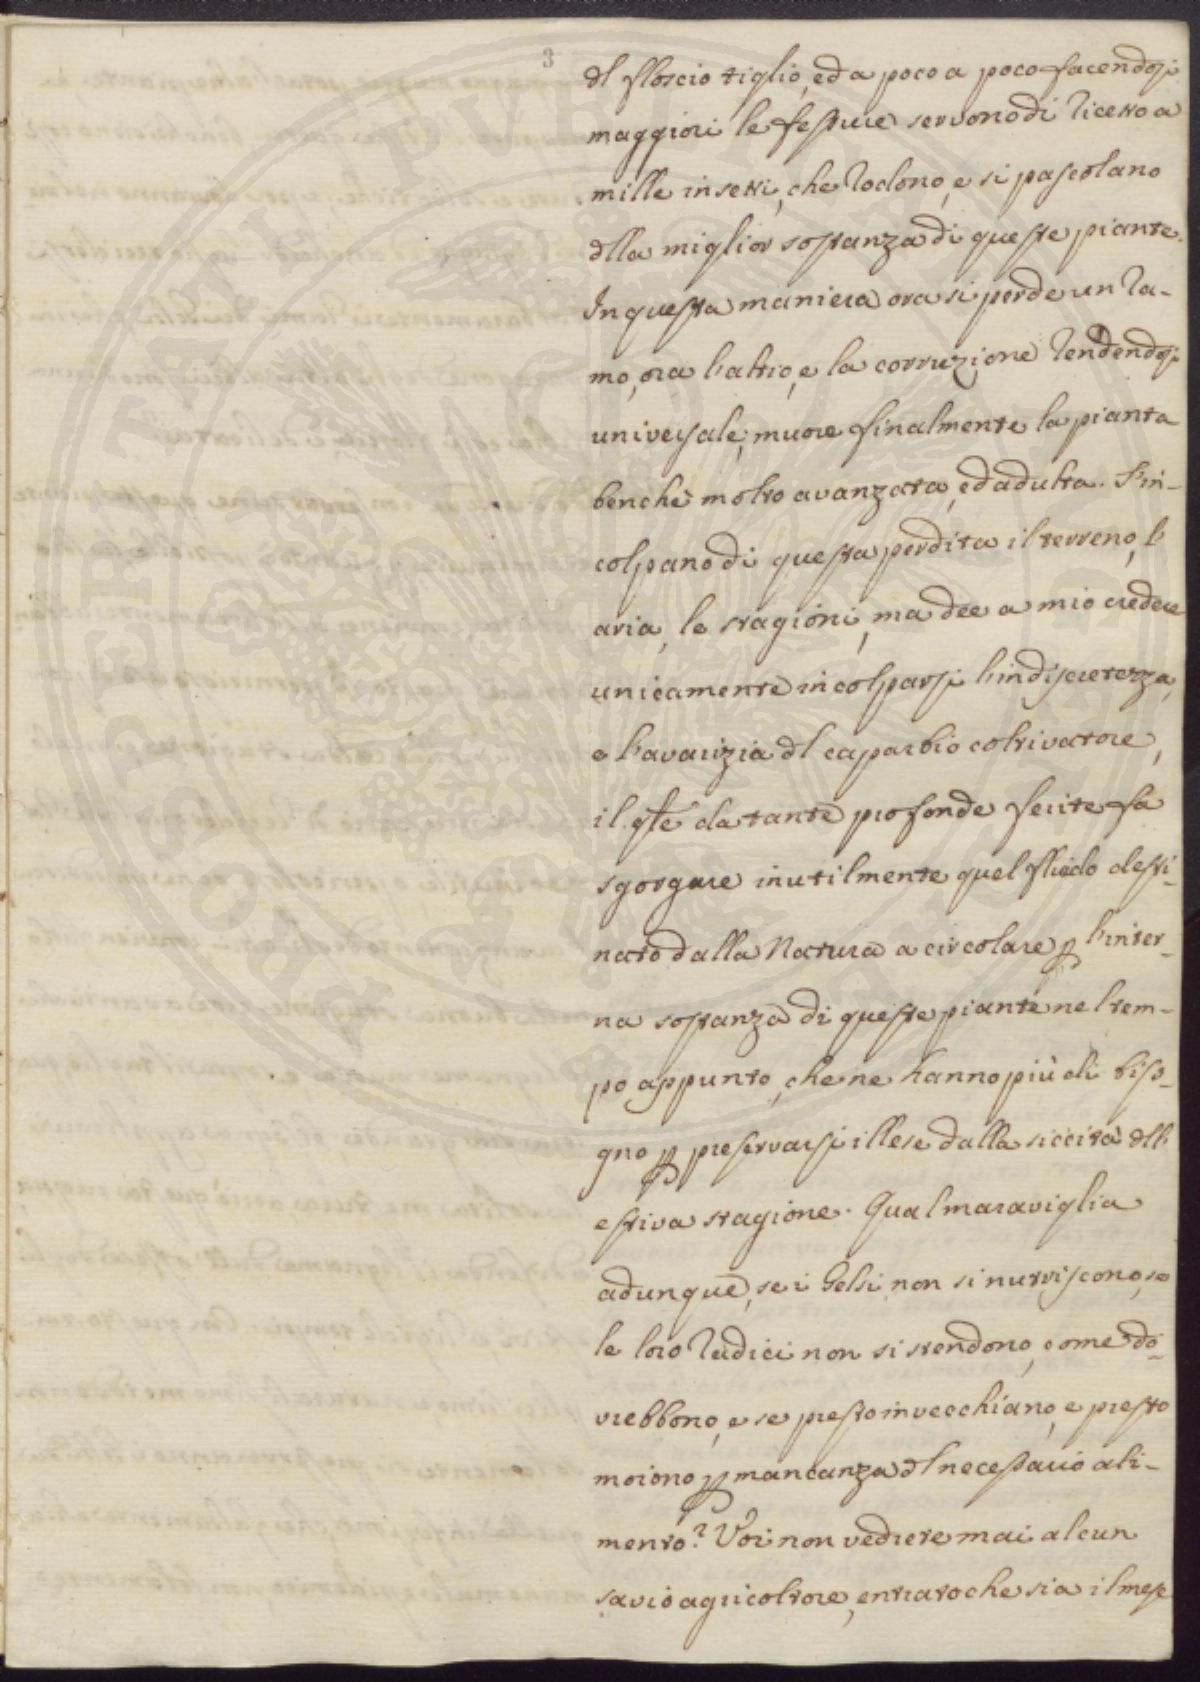 3
dl floscio tiglio, ed a poco a poco facendosi
maggiori le fessure servono di ricetto a
mille insetti, che rodono, e si pascolano
dlla miglior sostanza di queste piante.
In questa maniera ora si perde un ra-
mo, ora l'altro, e la corruzione rendendosi
universale, muore finalmente la pianta
benchè molto avanzata, ed adulta. S'in-
colpano di questa perdita il terreno, l'
aria, le stagioni, ma dee a mio credere
unicamente incolparsi l'indiscretezza,
e l'avarizia dl caparbio coltivatore,
il qle da tante profonde ferite fa
sgorgare inutilmente quel fluido desti-
nato dalla Natura a circolare p l'inter-
na sostanza di queste piante nel tem-
po appunto, che ne hanno più di biso-
gno p preservarsi illese dalla siccità dll'
estiva stagione. Qual maraviglia
adunque, se i Gelsi non si nutriscono, se
le loro radici non si stendono, come do-
vrebbono, e se presto invecchiano, e presto
moiono p mancanza dl necessario ali-
mento? Voi non vedrete mai alcun
savio agricoltore, entrato che sia il mese
PUBLICAE